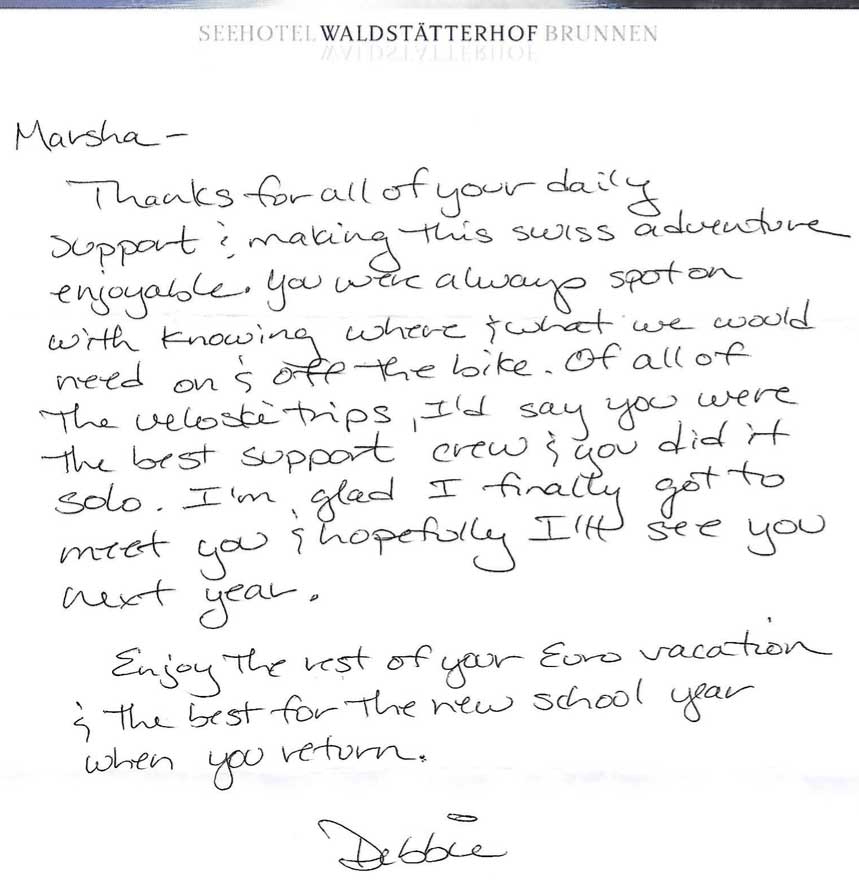 SEEHOTEL WALDSTÄTTERHOF BRUNNEN
Marsha –
Thanks for all of your daily
support & making this swiss adventure
enjoyable. You were always spot on
with knowing where & what we would
need on & off the bike. Of all of
the veloski trips, I'd say you were
the best support crew & you did it
solo. I'm glad I finally got to
meet you & hopefully I'll see you
next year.
Enjoy the rest of your Euro vacation
& the best for the new school year
when you return.
Debbie